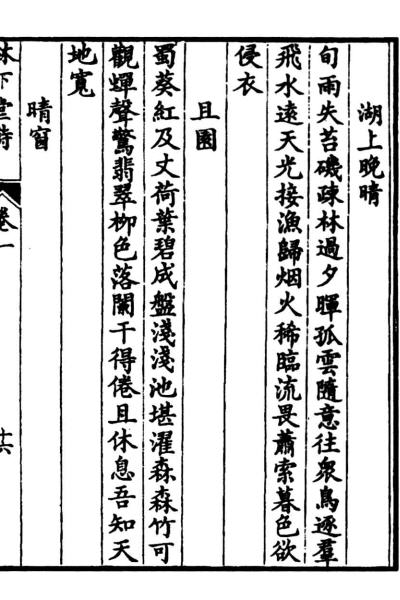 湖上晚晴
旬雨失苔磯疎林過夕暉孤雲隨意往衆鳥逐羣
飛水遠天光接漁歸烟火稀臨流畏蕭索暮色欲
侵衣
且園
蜀葵紅及丈荷葉碧成盤淺淺池堪濯森森竹可
觀蟬聲驚翡翠柳色落闌干得倦且休息吾知天
地寛
晴窗
林下堂詩
卷一
十六